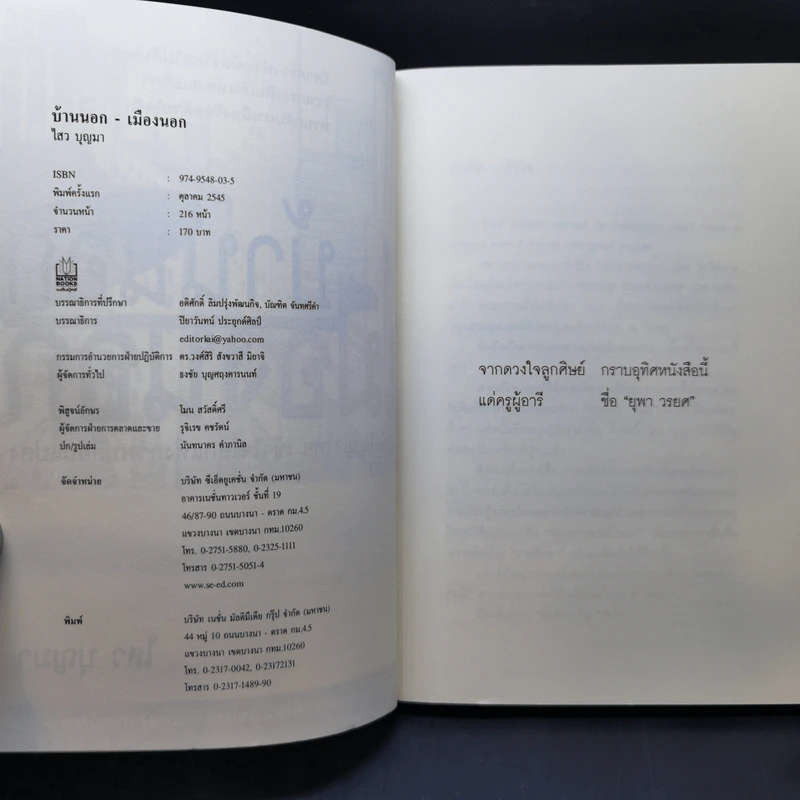 บ้านนอก - เมืองนอก
ไสว บุญมา
ISBN : 974-9548-03-5
พิมพ์ครั้งแรก : ตุลาคม 2545
จำนวนหน้า : 216 หน้า
ราคา : 170 บาท
NATION
BOOKS
บรรณาธิการที่ปรึกษา อดิศักดิ์ ลิมปรุ่งพัฒนกิจ, บัณฑิต จันทศรีคำ
บรรณาธิการ ปิยาวันทน์ ประยุกต์ศิลป์
editorkai@yahoo.com
กรรมการอำนวยการฝ่ายปฏิบัติการ ดร.วงศ์สิริ สังขวาสี มิยาจิ
ผู้จัดการทั่วไป ธงชัย บุญศฤงคารนนท์
พิสูจน์อักษร โมน สวัสดิ์ศรี
ผู้จัดการฝ่ายการตลาดและขาย รุจิเรข คชรัตน์
ปก/รูปเล่ม นันทนาคร คำภานิล
จัดจำหน่าย บริษัท ซีเอ็ดยูเคชั่น จำกัด (มหาชน)
อาคารเนชั่นทาวเวอร์ ชั้นที่ 19
46/87-90 ถนนบางนา - ตราด กม.4.5
แขวงบางนา เขตบางนา กทม.10260
โทร. 0-2751-5880, 0-2325-1111
โทรสาร 0-2751-5051-4
www.se-ed.com
พิมพ์ บริษัท เนชั่น มัลติมีเดีย กรุ๊ป จำกัด (มหาชน)
44 หมู่ 10 ถนนบางนา - ตราด กม.4.5
แขวงบางนา เขตบางนา กทม.10260
โทร. 0-2317-0042, 0-23172131
โทรสาร 0-2317-1489-90
จากดวงใจลูกศิษย์ กราบอุทิศหนังสือนี้
แด่ครูผู้อารี ชื่อ "ยุพา วรยศ"